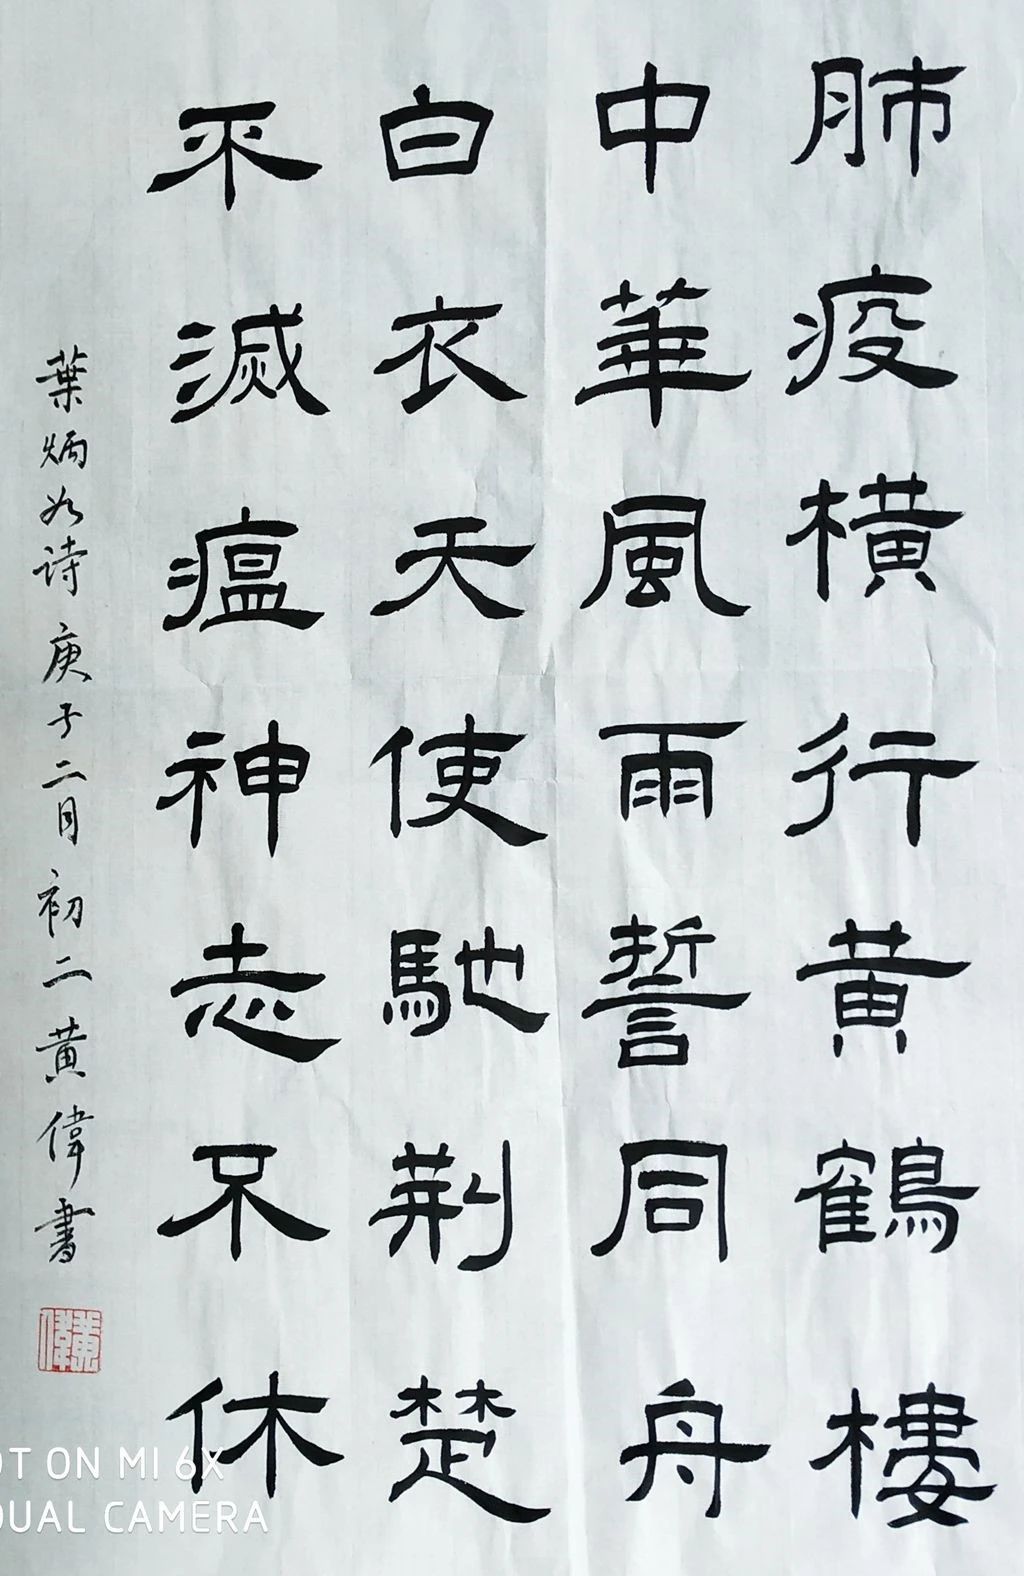 肺疫橫行黄鶴樓
中華風雨誓同舟
白衣天使馳荆楚
平滅瘟神志不休
葉炳如诗庚子二月初二黄偉書
黄偉
OT ON MI 6X
DUAL CAMERA